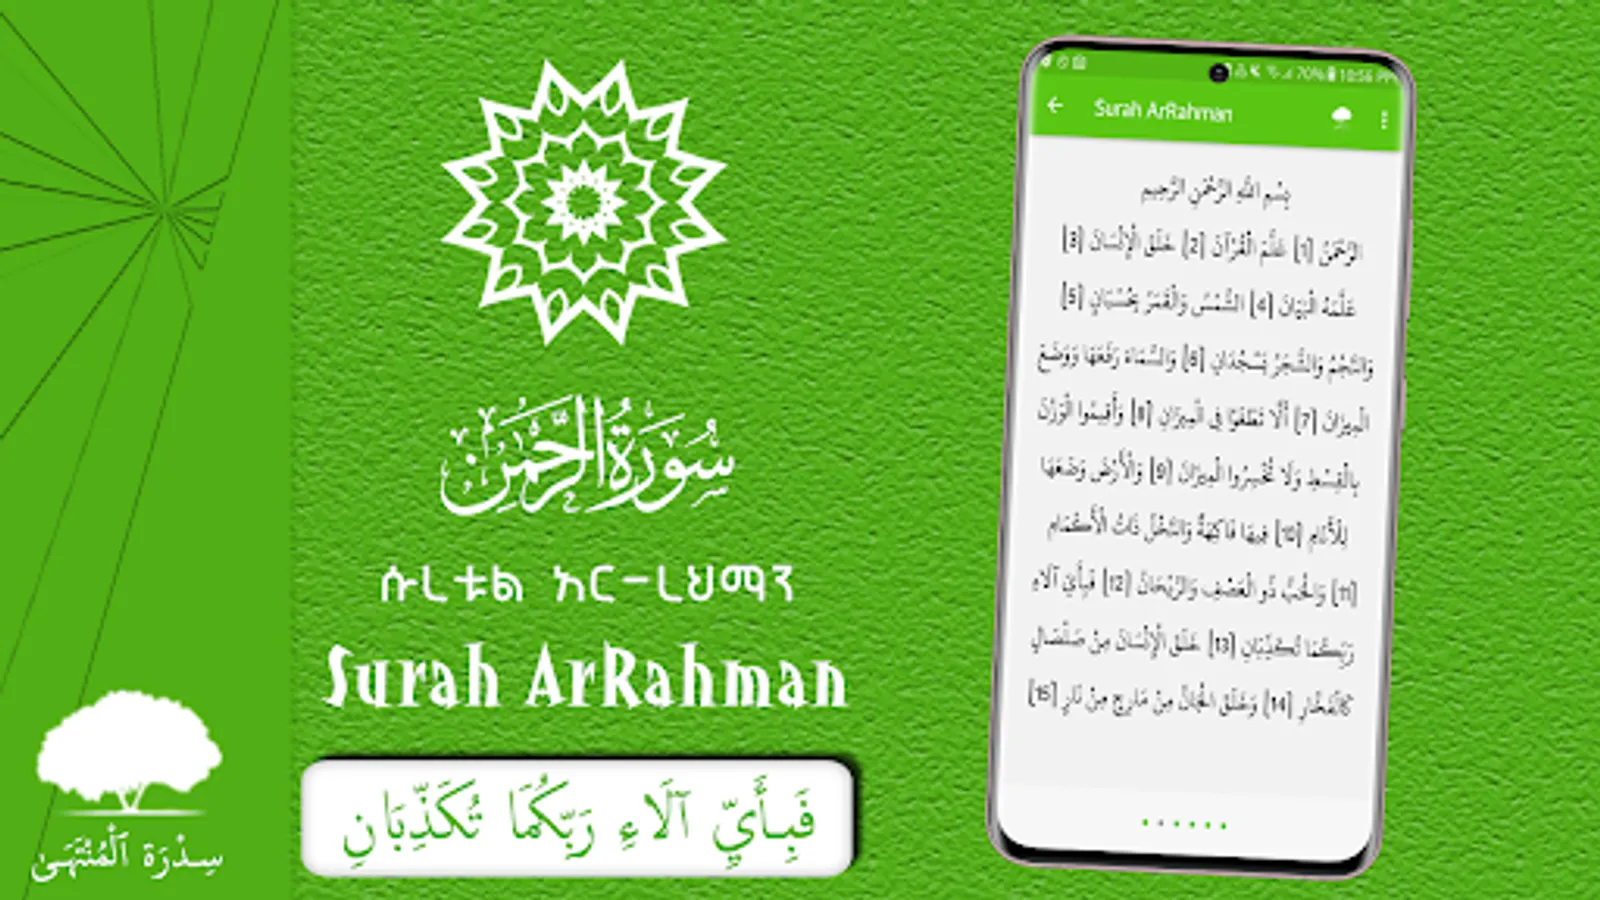 سُورَةُ الرَّحْمٰن
ሱረቱል አር-ረህማን
Surah ArRahman
فَبِأَيِّ آلَاءِ رَبِّكُمَا تُكَذِّبَانِ
سِدْرَة ٱلْمُنْتَهَىٰ
70% 10:56 PM
Surah ArRahman
بِسْمِ اللَّهِ الرَّحْمَٰنِ الرَّحِيمِ
الرَّحْمَٰنُ [1] عَلَّمَ الْقُرْآنَ [2] خَلَقَ الْإِنْسَانَ [3]
عَلَّمَهُ الْبَيَانَ [4] الشَّمْسُ وَالْقَمَرُ بِحُسْبَانٍ [5]
وَالنَّجْمُ وَالشَّجَرُ يَسْجُدَانِ [6] وَالسَّمَاءَ رَفَعَهَا وَوَضَعَ
الْمِيزَانَ [7] أَلَّا تَطْغَوْا فِي الْمِيزَانِ [8] وَأَقِيمُوا الْوَزْنَ
بِالْقِسْطِ وَلَا تُخْسِرُوا الْمِيزَانَ [9] وَالْأَرْضَ وَضَعَهَا
لِلْأَنَامِ [10] فِيهَا فَاكِهَةٌ وَالنَّخْلُ ذَاتُ الْأَكْمَامِ
[11] وَالْحَبُّ ذُو الْعَصْفِ وَالرَّيْحَانُ [12] فَبِأَيِّ آلَاءِ
رَبِّكُمَا تُكَذِّبَانِ [13] خَلَقَ الْإِنْسَانَ مِنْ صَلْصَالٍ
كَالْفَخَّارِ [14] وَخَلَقَ الْجَانَّ مِنْ مَارِجٍ مِنْ نَارٍ [15]